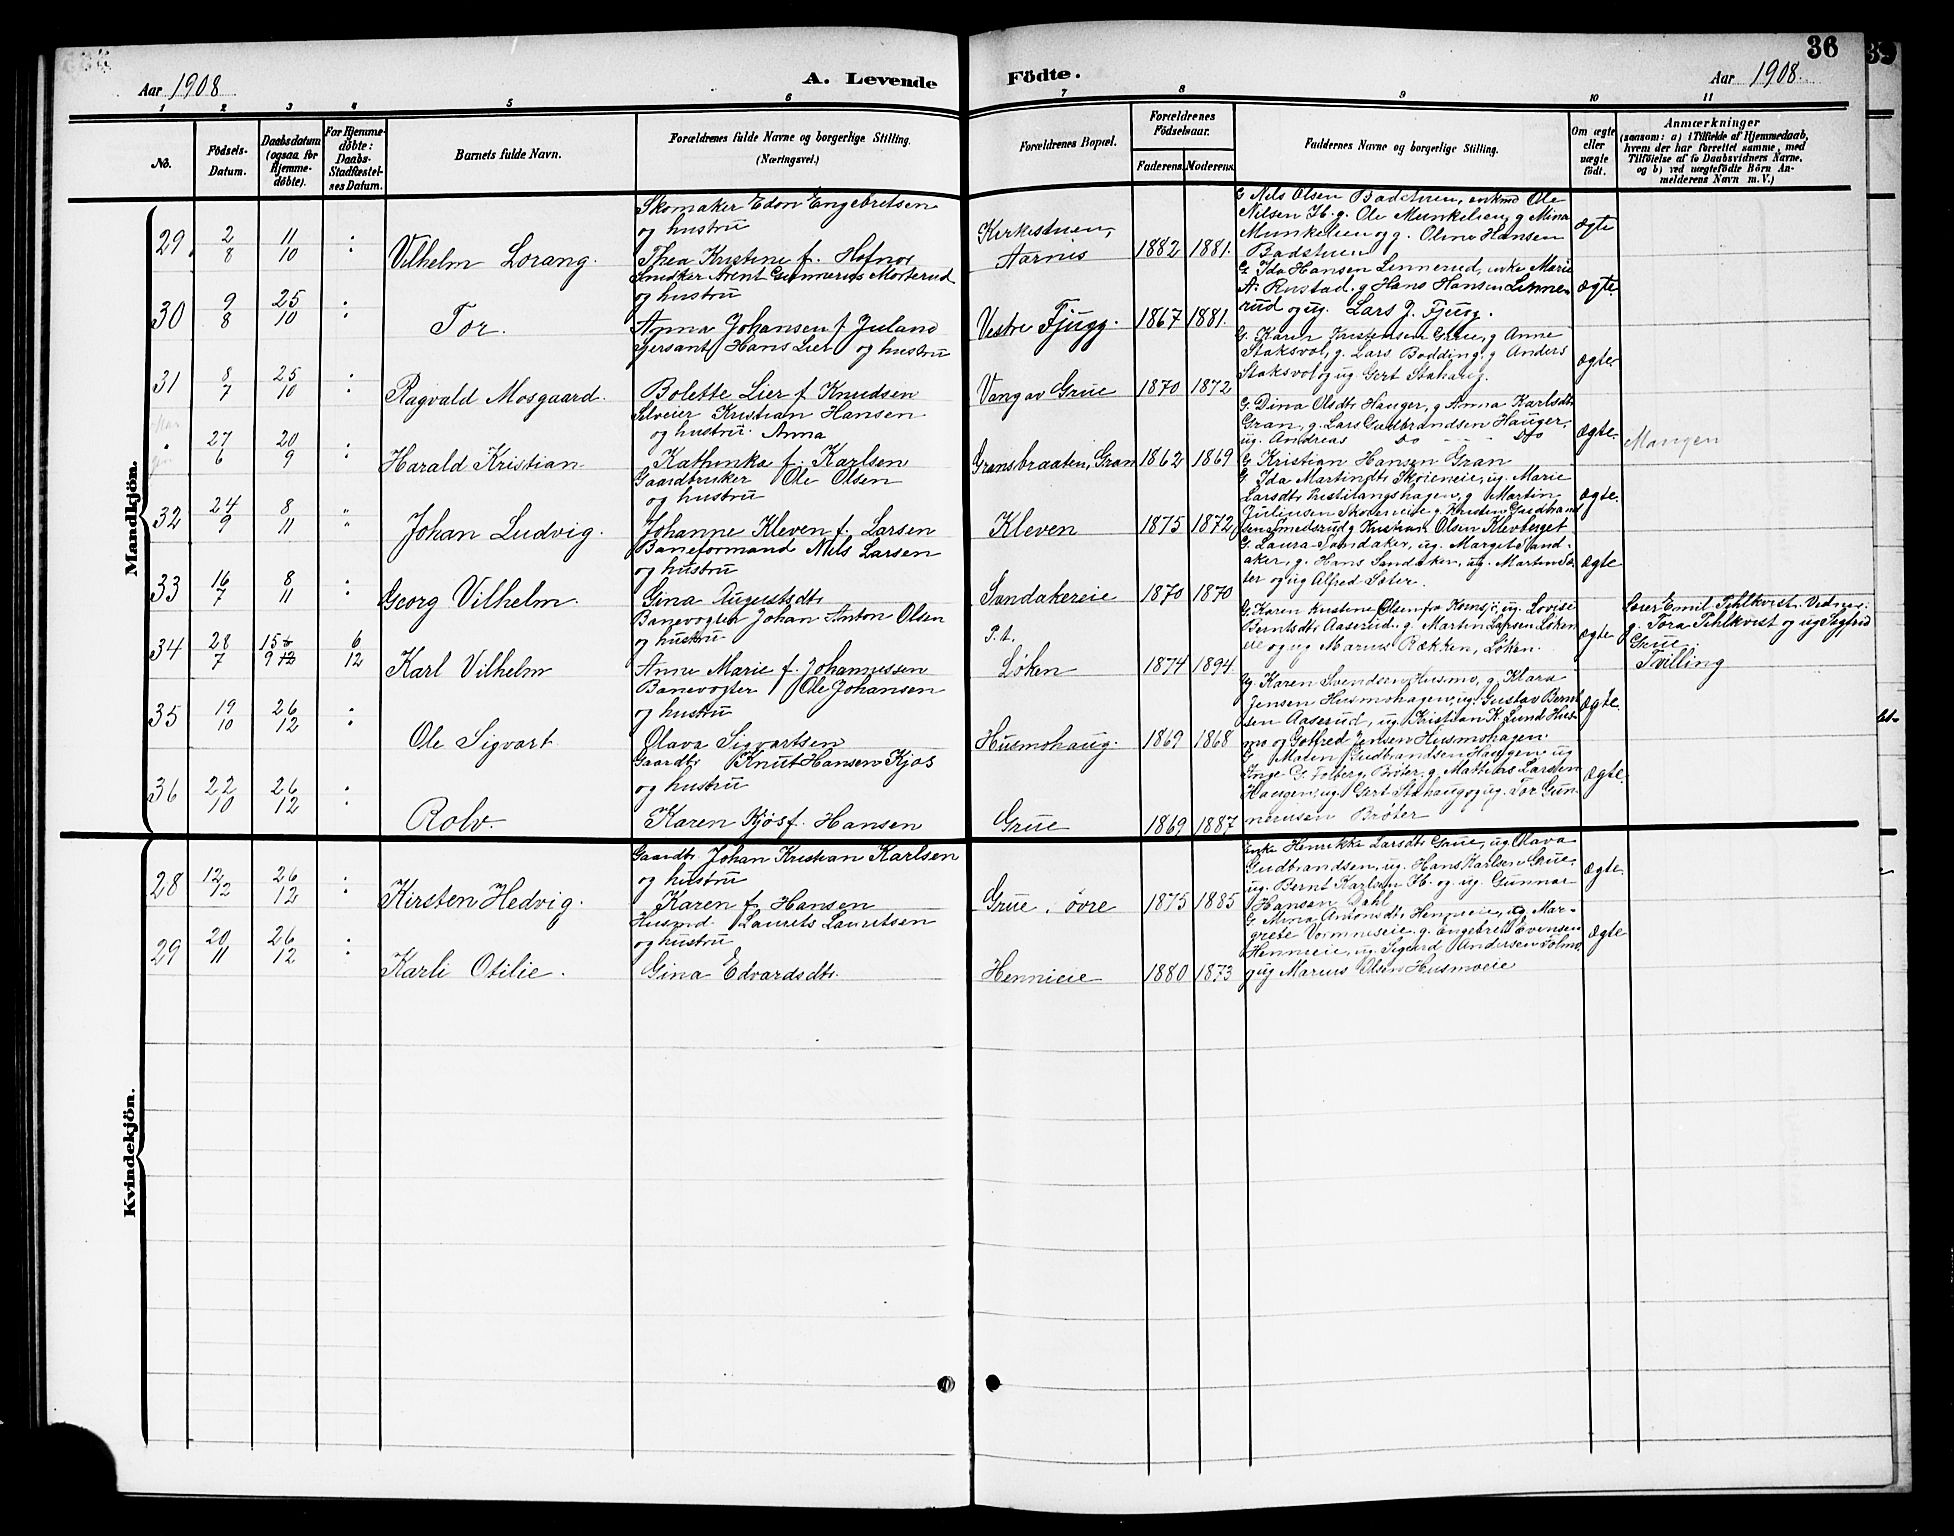 36
Aar 1908.
A. Levende Födte.
Aar 1908.
1 2 3 4 5 6 7 8 9 10 11
No.
Födsels-Datum.
Daabsdatum (ogsaa for Hjemme-döbte).
For Hjemme-döbte: Daabs-Stadfæstel-ses Datum.
Barnets fulde Navn.
Forældrenes fulde Navne og borgerlige Stilling.
(Næringsvei.)
Forældrenes Bopæl.
Forældrenes Födselsaar.
Faderens Moderens.
Faddernes Navne og borgerlige Stilling.
Om ægte eller uægte födt.
Anmærkninger
(saasom: a) i Tilfælde af Hjemmedaab,
hvem der har forrettet samme, med
Tilföielse af to Daabsvidners Navne,
og b) ved uægtefödte Börn An-
melderens Navn m. V.)
Mandkjön.
29. 2/8 11/10 Vilhelm Lorang.
Skomaker Edon Engebretsen
og hustru
Thea Kristine f. Hofnor
Kirkestuen,
Aarnis
1882 1881.
G Nils Olsen Badstuen, enkmd Ole
Nilsen Ib. g. Ole Munkelien, g Mina
Munkelien og g. Oline Hansen
Badstuen
ægte
30 9/8 25/10 Tor.
Snidker Arent Gunnerius Morterud
og hustru
Anna Johansen f. Juland
Vestre Fjugg.
1867 1881.
G. Ida Hansen Linnerud, enke Marie
A. Rustad. g Hans Hansen Linne-
rud og ug. Lars J. Fjugg.
Ægte.
31 8/7 25/10 Ragvald Mosgaard.
Sersant Hans Lier og hustru
Bolette Lier f. Knudsen
Vang av Grue
1870 1872
G. Karen Kristensen Grue, g Anne
Staksvol, g. Lars Bodding, g Anders
Staksvol og ug Gert Stahaug.
Ægte
27/6 20/9 Harald Kristian
Kristian Hansen
og hustru. Anna
Kathinka f. Karlsen
Gransbraaten, Gran
1862 1869
G. Dina Olsdtr Hauger, g Anna Karlsdtr
Gran, g. Lars Gudbrandsen Hauger,
ug. Andreas Do Do
G Kristian Hansen Gran
Ægte.
Mangen
32 24/9 8/11 Johan Ludvig.
Gaardbruker Ole Olsen
og hustru
Johanne Kleven f. Larsen
Kleven
1875 1872
G Ida Martindtr Skøieneie, ug. Marie
Larsdtr Prestilangshagen, g Martin
Juliussen Skøieneie g Kristen Gudbrand
sen Smedsrud g Kristian Olsen Klevberget
Ægte.
33 16/7 8/11 Georg Vilhelm.
Baneformand Nils Larsen
og hustru
Gina Augustsdtr
Sandakereie
1870 1870
G. Laura Sandaker, ug. Marget Sand-
aker, g. Hans Sandaker, ug. Martin Sæ-
ter og ug Alfred Sæter.
Ægte
34 28/7 15/9 6/12 Karl Vilhelm
Banevogter Johan Anton Olsen
og hustru
Anne Marie f. Johannessen
P.t.
Løken
1874 1894
G. Karen Kristine Olsen fra Kornsjø, ug. Lovise
Berntsdtr Aaserud. g. Martin Larsen Løken
eie og ug Marius Rækken, Løken.
Ægte
Lærer Emil Pihlkvist. Vidner:
g. Tora Pihlkvist og ug Sigfrid
Grue.
Tvilling
35 19/10 26/12 Ole Sigvart
Banevogter Ole Johansen
og hustru
Olava Sigvartsen
Husmohaug.
1869 1868
G. Karen Svendsen Husmo, g Klara
Jensen Husmohagen, ug. Gustav Bernt
sen Aaserud, ug. Kristian K. Lund Hus-
mo og Gotfred Jensen Husmohagen.
Ægte.
36 22/10 26/12 Rolv.
Gaardbr Knut Hansen Kjøs
og hustru
Karen Kjøs f. Hansen
Grue
1869 1887
G Maten Gudbrandsen Haugen ug
Inge G. Tolberg Brøter, g. Mathias Larsen
Haugen, ug. Gert Stahaug og ug. Tor Gun-
neriusen Brøter
Ægte.
Kvindekjön.
28 12/12 26/12 Kirsten Hedvig.
Gaardbr Johan Kristian Karlsen
og hustru
Karen f. Hansen
Grue, øvre
1875 1885
Enke Henrikke Larsdtr Grue, ug Olava
Gudbrandsen, ug. Hans Karlsen Grue,
ug. Bernt Karlsen Ib. og ug. Gunnar
Hansen Dahl
Ægte.
29 20/11 26/12 Karli Otilie.
Husmd. Laurets Lauritsen
og hustru
Gina Edvardsdtr.
Hennieie
1880 1873
G Mina Antonsdtr Hennieie, ug Mar-
grete Vormneseie. g. Engebret Svensen
Hennieie, ug. Sigurd Andersen Holmo,
g ug Marius Olsen Husmoeie
Ægte